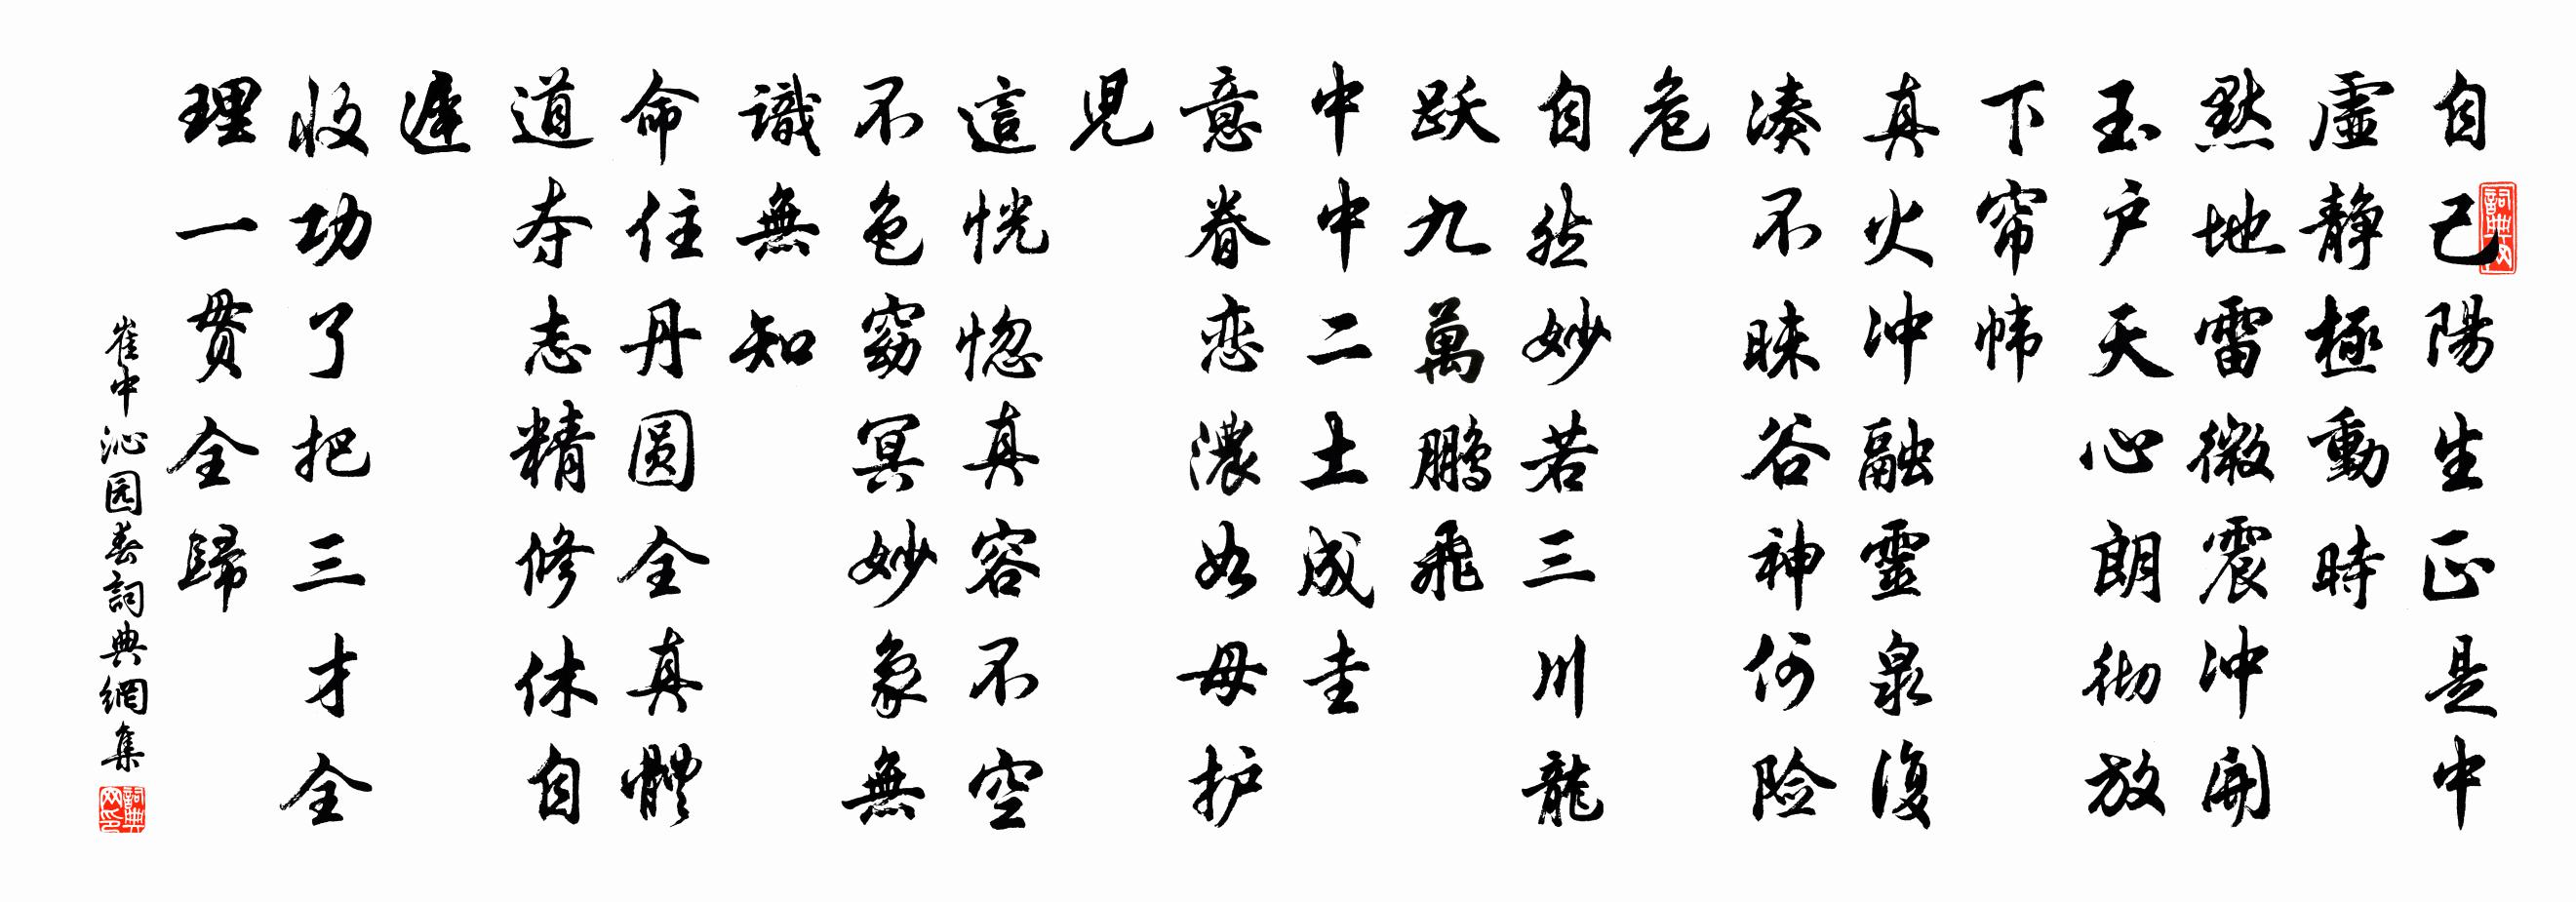 自己陽生正是中
虛静極動時
黙地雷微震冲開
玉户天心朗彻放
下帘帏
真火冲融靈泉復
凑不昧谷神何险
危
自然妙若三川龍
跃九萬鵬飛
中中二土成圭
意眷恋濃如母护
児
這恍惚真容不空
不色窈冥妙象無
識無知
命住丹圆全真體
道夺志精修休自
遲
收功了把三才全
理一贯全歸
崔中沁园春詞典網集
詞典网
詞典网印